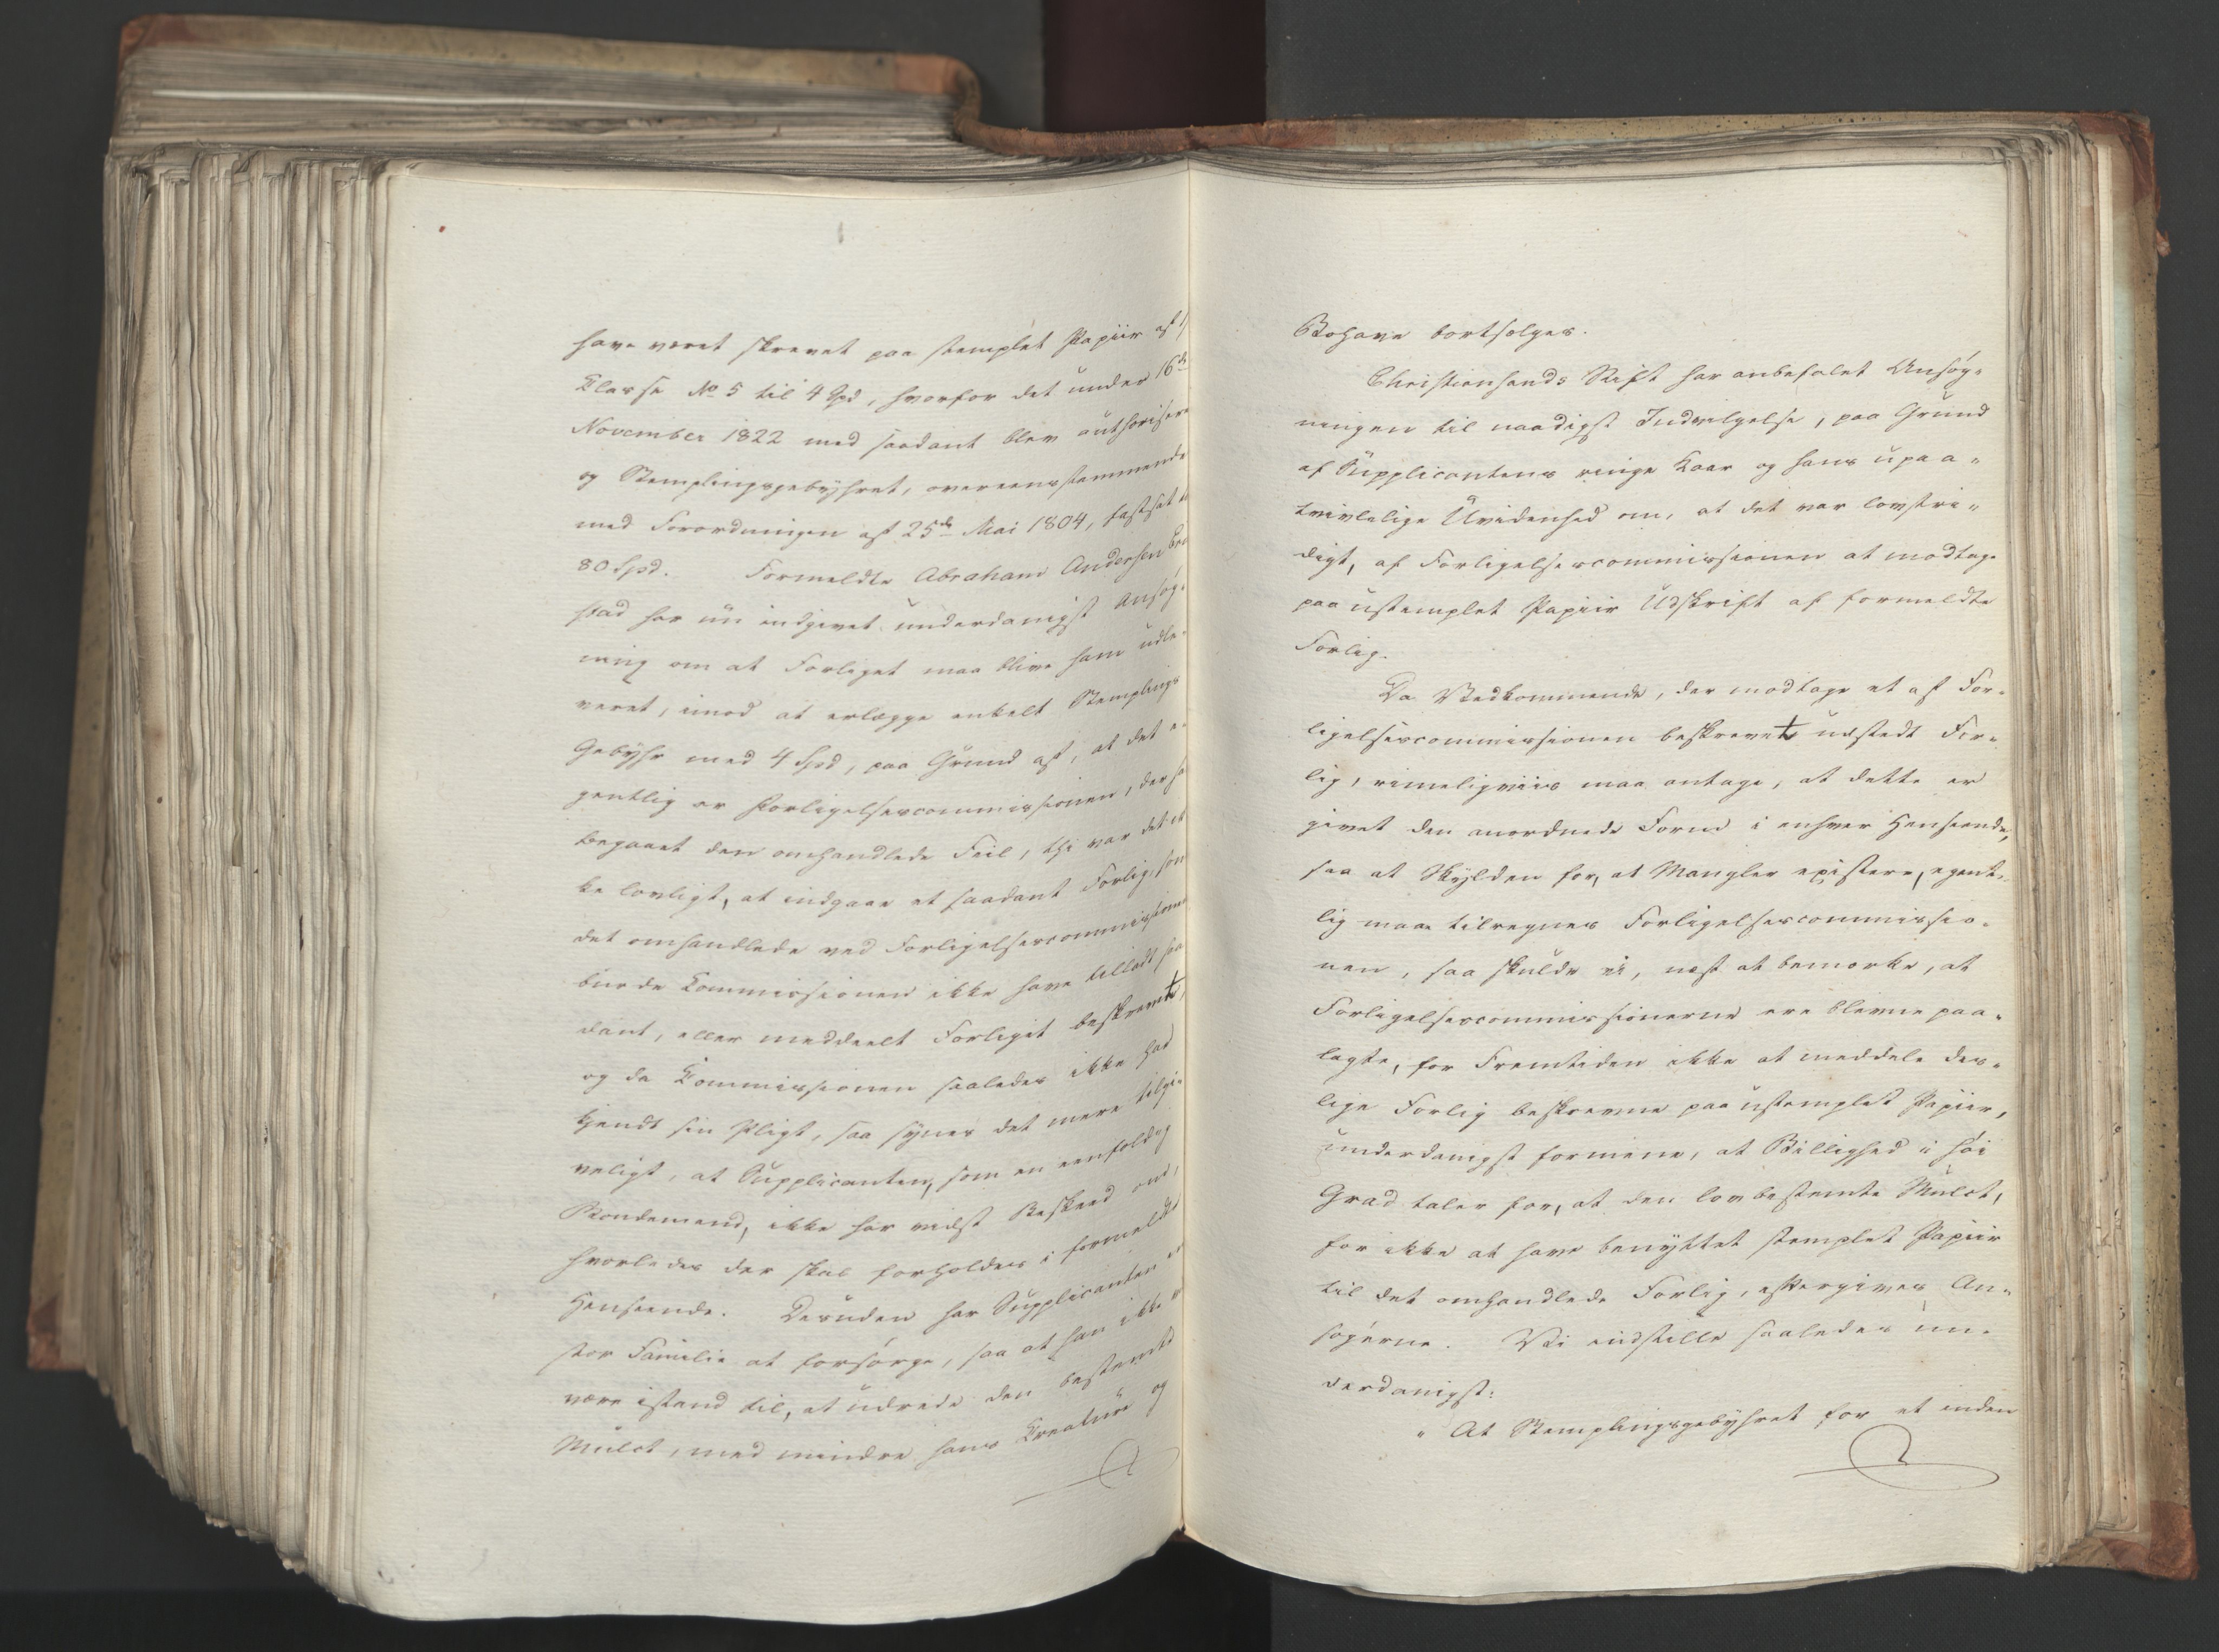 have været skrevet paa stemplet Papiir af 1
Classe No 5 til 4 Spd, hvorfor det under 16de
November 1822 med saadant blev authorisere
og Stemplingsgebyhret, overeensstemmende
med Forordningen af 25de Mai 1804, fastsat t
80 Spd. Formeldte Abraham Andersen
stad har nu indgivet underdanigst Ansøg-
ning om at Forliget maa blive ham udle-
veret, imod at erlægge enkelt Stemplings
Gebyhr med 4 Spd, paa Grund af, at det e-
gentlig er Forligelsescommissionen, der ha
begaaet den omhandlede Feil, thi var det ik
ke lovligt, at indgaae et saadant Forlig, som
det omhandlede ved Forligelsescommissione
burde Commissionen ikke have tilladt saa
dant, eller meddeelt Forliget beskrevet,
og da Commissionen saaledes ikke har
kjendt sin Pligt, saa synes det mere tilgi-
veligt, at Supplicanten, som en eenfoldig
Bondemand, ikke har vidst Beskeed om,
hvorledes der skal forholdes i formeldte
Henseende. Desuden har Supplicanten en
stor Familie at forsørge, saa at han ikke
være istand til, at udrede den bestemte
Mulct, med mindre hans Creature og
Bohave bortsælges.
Christiansands Stift har anbefalet Ansøg-
ningen til naadigst Indvilgelse, paa Grund
af Supplicantens ringe Kaar og hans upaa-
tvivlelige Uvidenhed om, at det var lovstri-
digt, af Forligelsescommissionen at modtage
paa ustemplet Papiir Udskrift af formeldte
Forlig.
Da Vedkommende, der modtage et af For-
ligelsescommissionen beskrevet udstedt For-
lig, rimeligviis maa antage, at dette er
givet den anordnede Form i enhver Henseende,
saa at Skylden for, at Mangler existere, egent-
lig maae tilregnes Forligelsescommissio-
nen, saa skulde vi, næst at bemærke, at
Forligelsescommissionerne ere blevne paa-
lagte, for Fremtiden ikke at meddele des-
lige Forlig beskrevne paa ustemplet Papiir,
underdanigst formene, at Billighed i høi
Grad taler for, at den lovbestemte Mulct,
for ikke at have benyttet stemplet Papiir
til det omhandlede Forlig, eftergives An-
søgerne. Vi indstille saaledes un-
derdanigst:
" At Stemplingsgebyhret for et inden